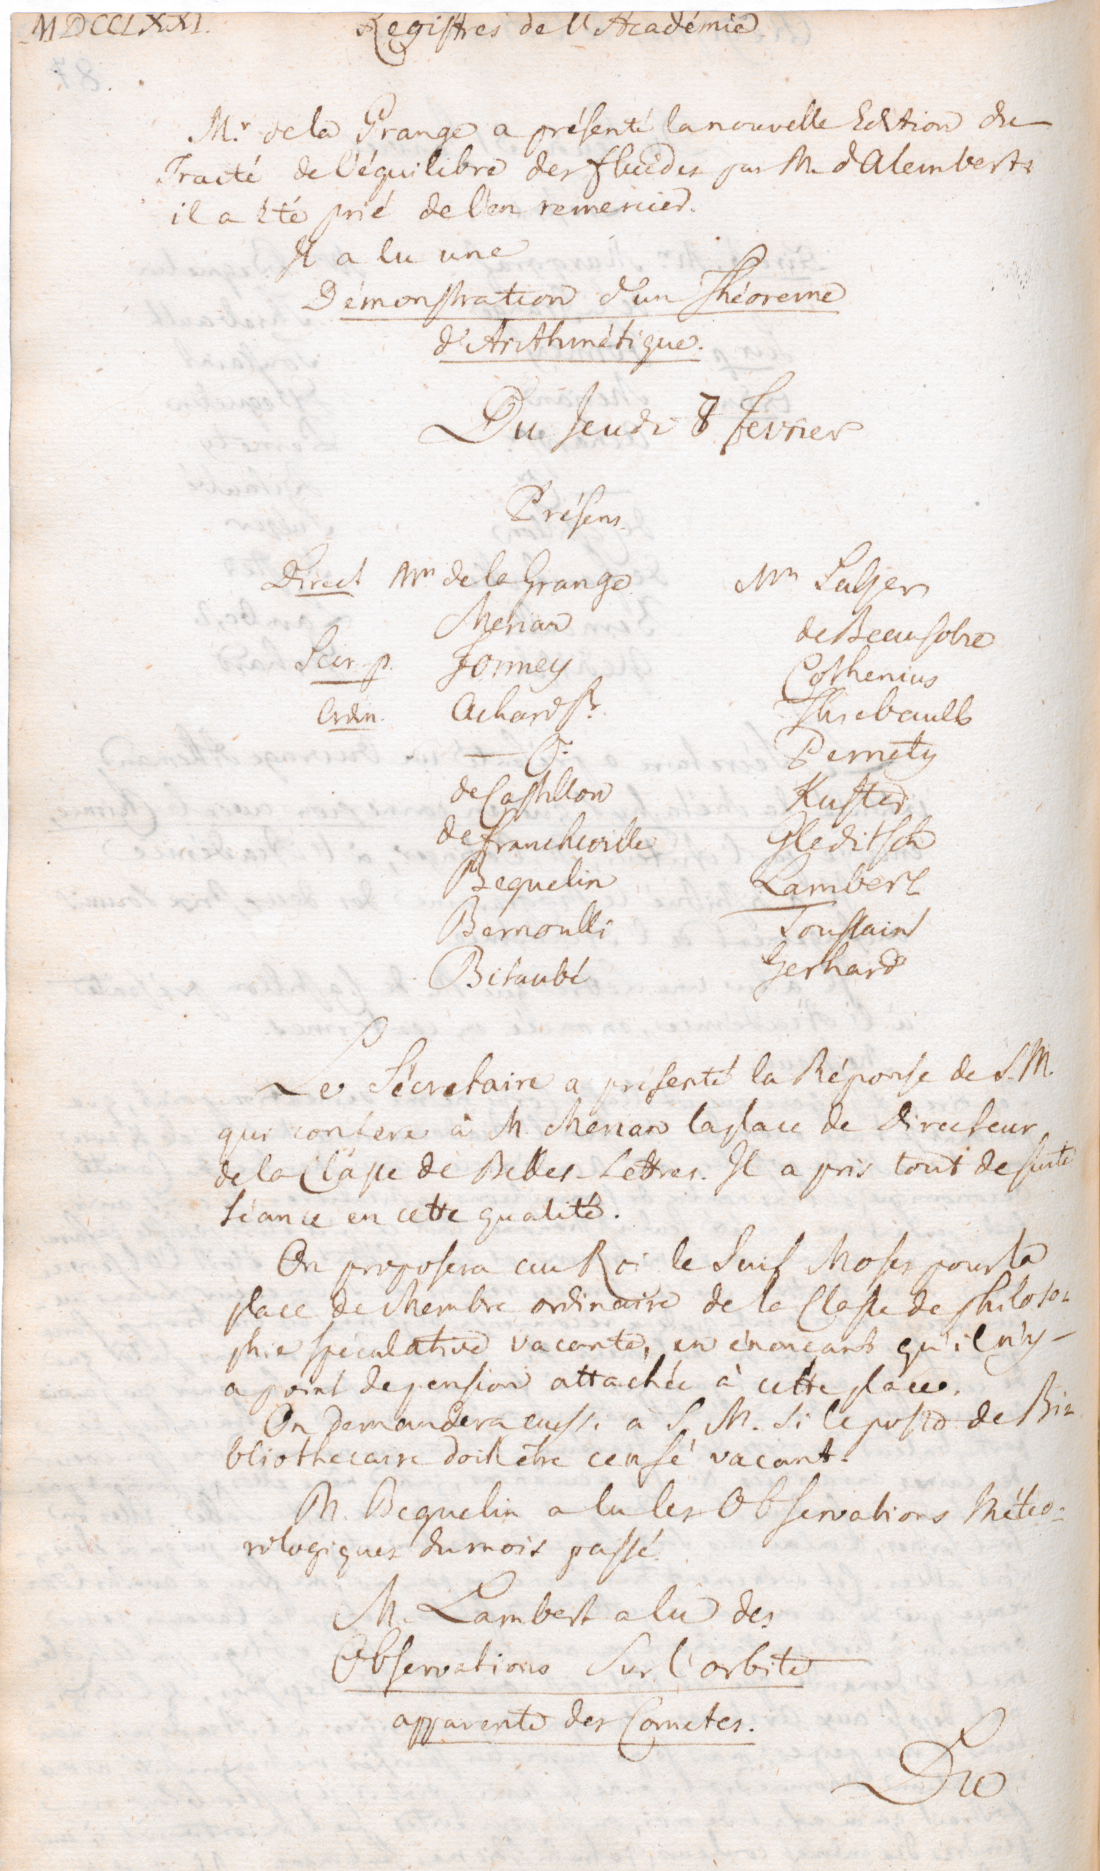 MDCCLXXI. Registres de l'Académie
M.r de la Grange a présenté la nouvelle Edition du
Traité de l'équilibre des fluides par M. d'Alembert:
il a été prié de l'en remercier.
Il a lu une
Démonstration d'un Théoreme
d'Arithmétique.
Du Jeudi 8 Fevrier
Présens.
Direct Mrs de la Grange Mrs Sulzer
Merian de Beausobre
Secr. p. Formey Cothenius
Ordin. Achard Sr. Thiebault
— J. Pernety
de Castillon Kuster
de Francheville Gleditsch
Beguelin Lambert
Bernoulli Toussaint
Bitaubé Gerhard
Le Sécretaire a présenté la Réponse de S. M.
qui confere à M. Merian la place de Directeur
de la Classe de Belles-Lettres. Il a pris tout de suite
séance en cette qualité.
On proposera au Roi le Juif Moses pour la
place de Membre ordinaire de la Classe de philoso-
phie spéculative vacante, en énonçant qu'il n'y
a point de pension attachée à cette place.
On demandera aussi à S. M. si le poste de Bi-
bliothecaire doit être censé vacant.
M. Beguelin a lu les Observations Météo-
rologiques du mois passé.
M. Lambert a lu des
Observations sur l'orbite
apparente des Cometes.
Du